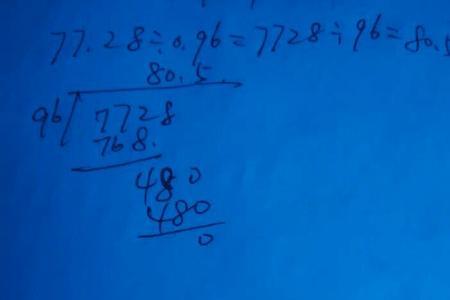 77.28÷0.96=7728÷96=80.5
80.5
96 7728
768.
480
480
0